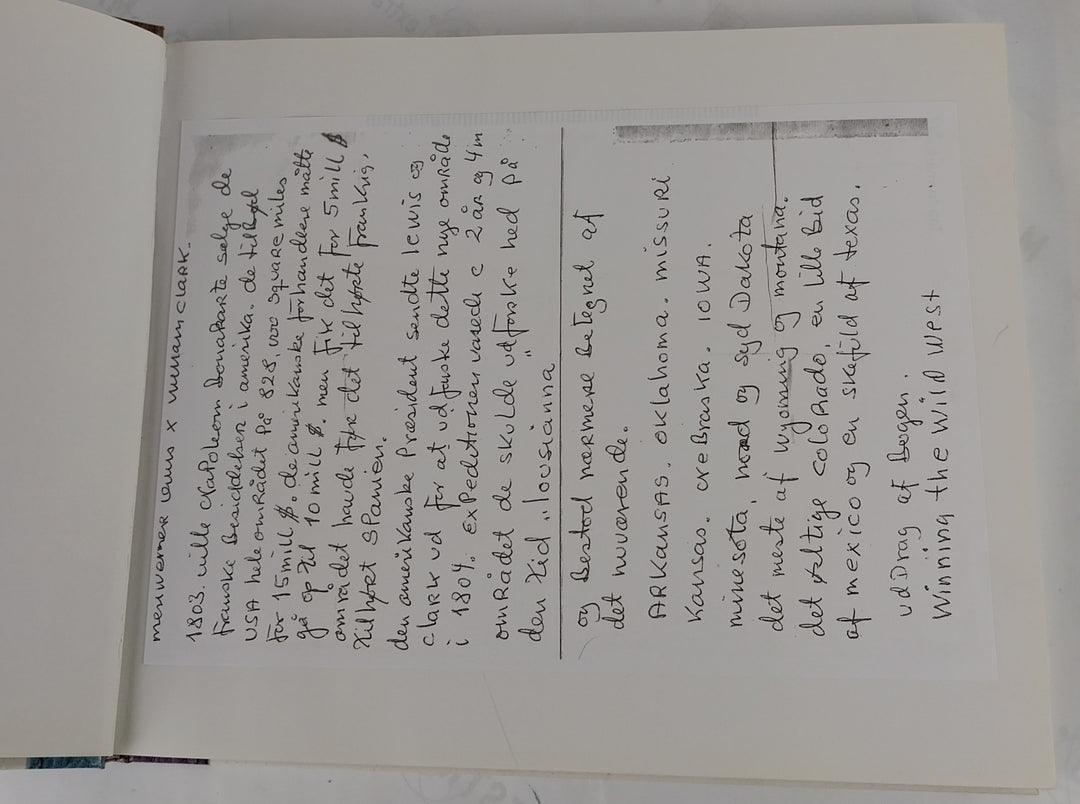 meriwerner lewis x william clark.
1803. ville Napoleon Bonaparte selge de
franske besiddelser i amerika. de tilbød
USA hele området på 828,000 square miles
for 15 mill $. de amerikanske forhandlere måtte
gå op til 10 mill $. men fik det for 5 mill $
området havde før det tilhørte Frankrig,
tilhørt Spanien.
den amerikanske Præsident sendte lewis og
clark ud for at udforske dette nye område
i 1804. expeditionen varede c 2 år og 4 m
området de skulde udforske hed på
den tid "lousianna"
og Bestod nærmere Betegnet af
det nuværende.
ARKANSAS. oklahoma. missuri
Kansas. NeBraska. IOWA.
minesota, nord og syd Dakota
det meste af wyoming og montana.
det østlige coloRado, en lille bid
af mexico og en skefuld af texas.
udDrag af bogen.
Winning the Wild West